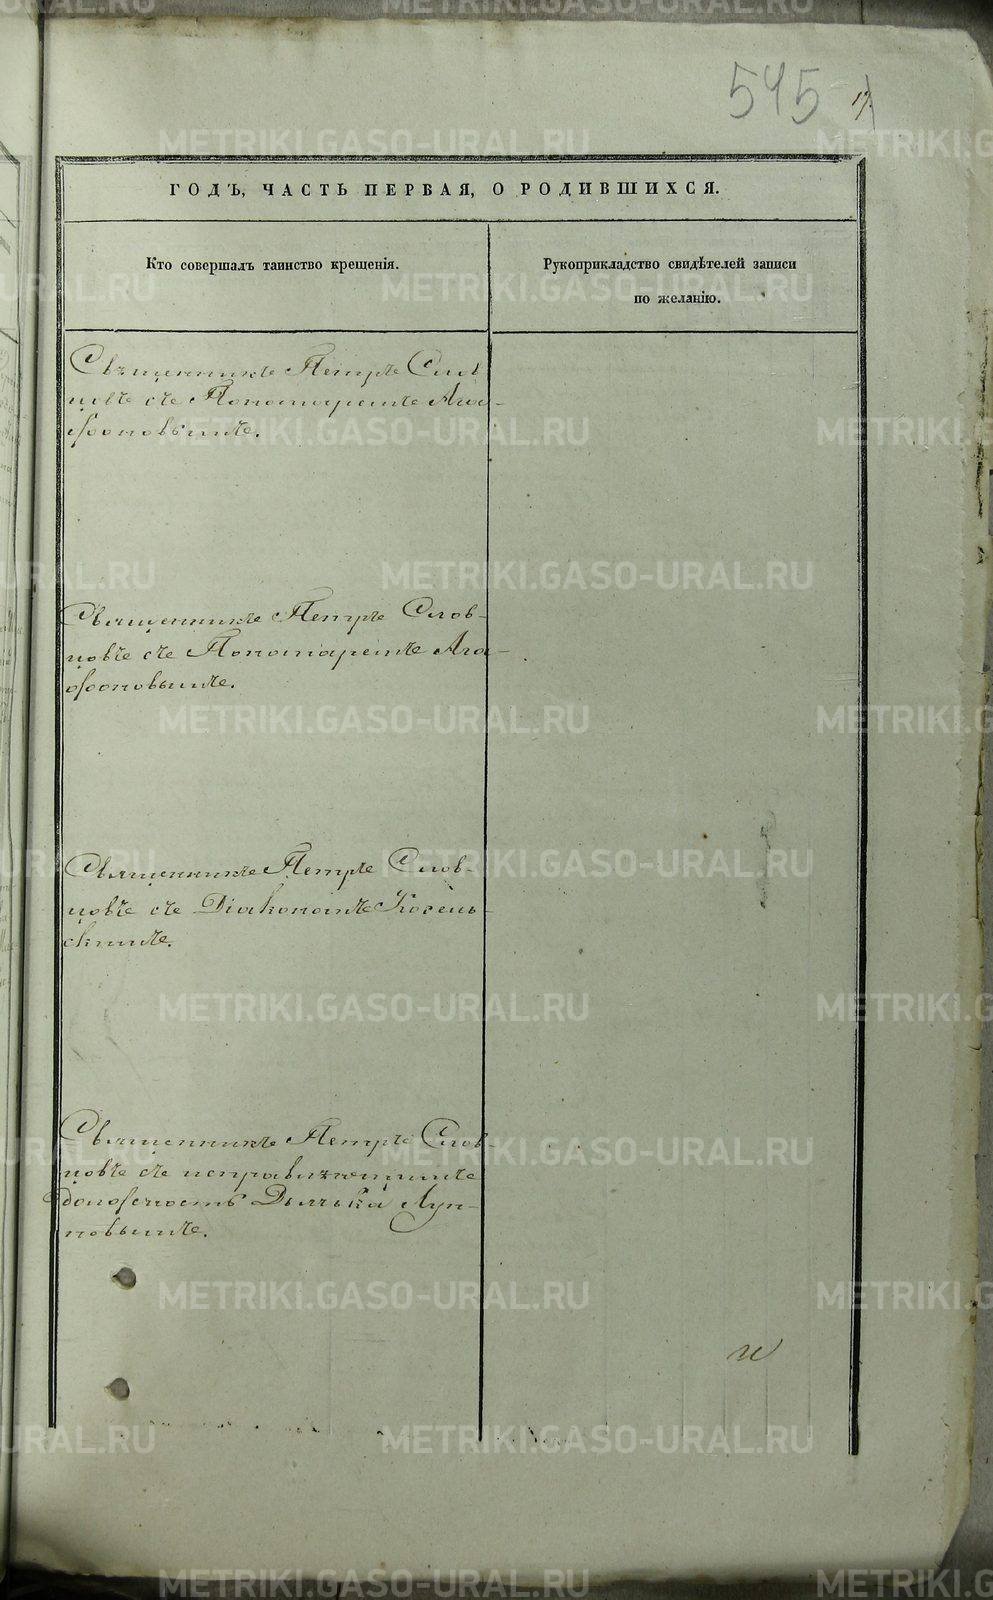 545
17.
ГОДЪ, ЧАСТЬ ПЕРВАЯ, О РОДИВШИХСЯ.
Кто совершалъ таинство крещенія.
Рукоприкладство свидѣтелей записи
по желанію.
Священникъ Петръ Слов
цовъ съ Пономаремъ Ага-
фоновымъ.
Священникъ Петръ Слов-
цовъ съ Пономаремъ Ага-
фоновымъ.
Священникъ Петръ Слов-
цовъ съ Діакономъ Косель-
скимъ.
Священникъ Петръ Слов-
цовъ съ исправляющимъ
должность Дьячька Луп-
повымъ.
и
METRIKI.GASO-URAL.RU